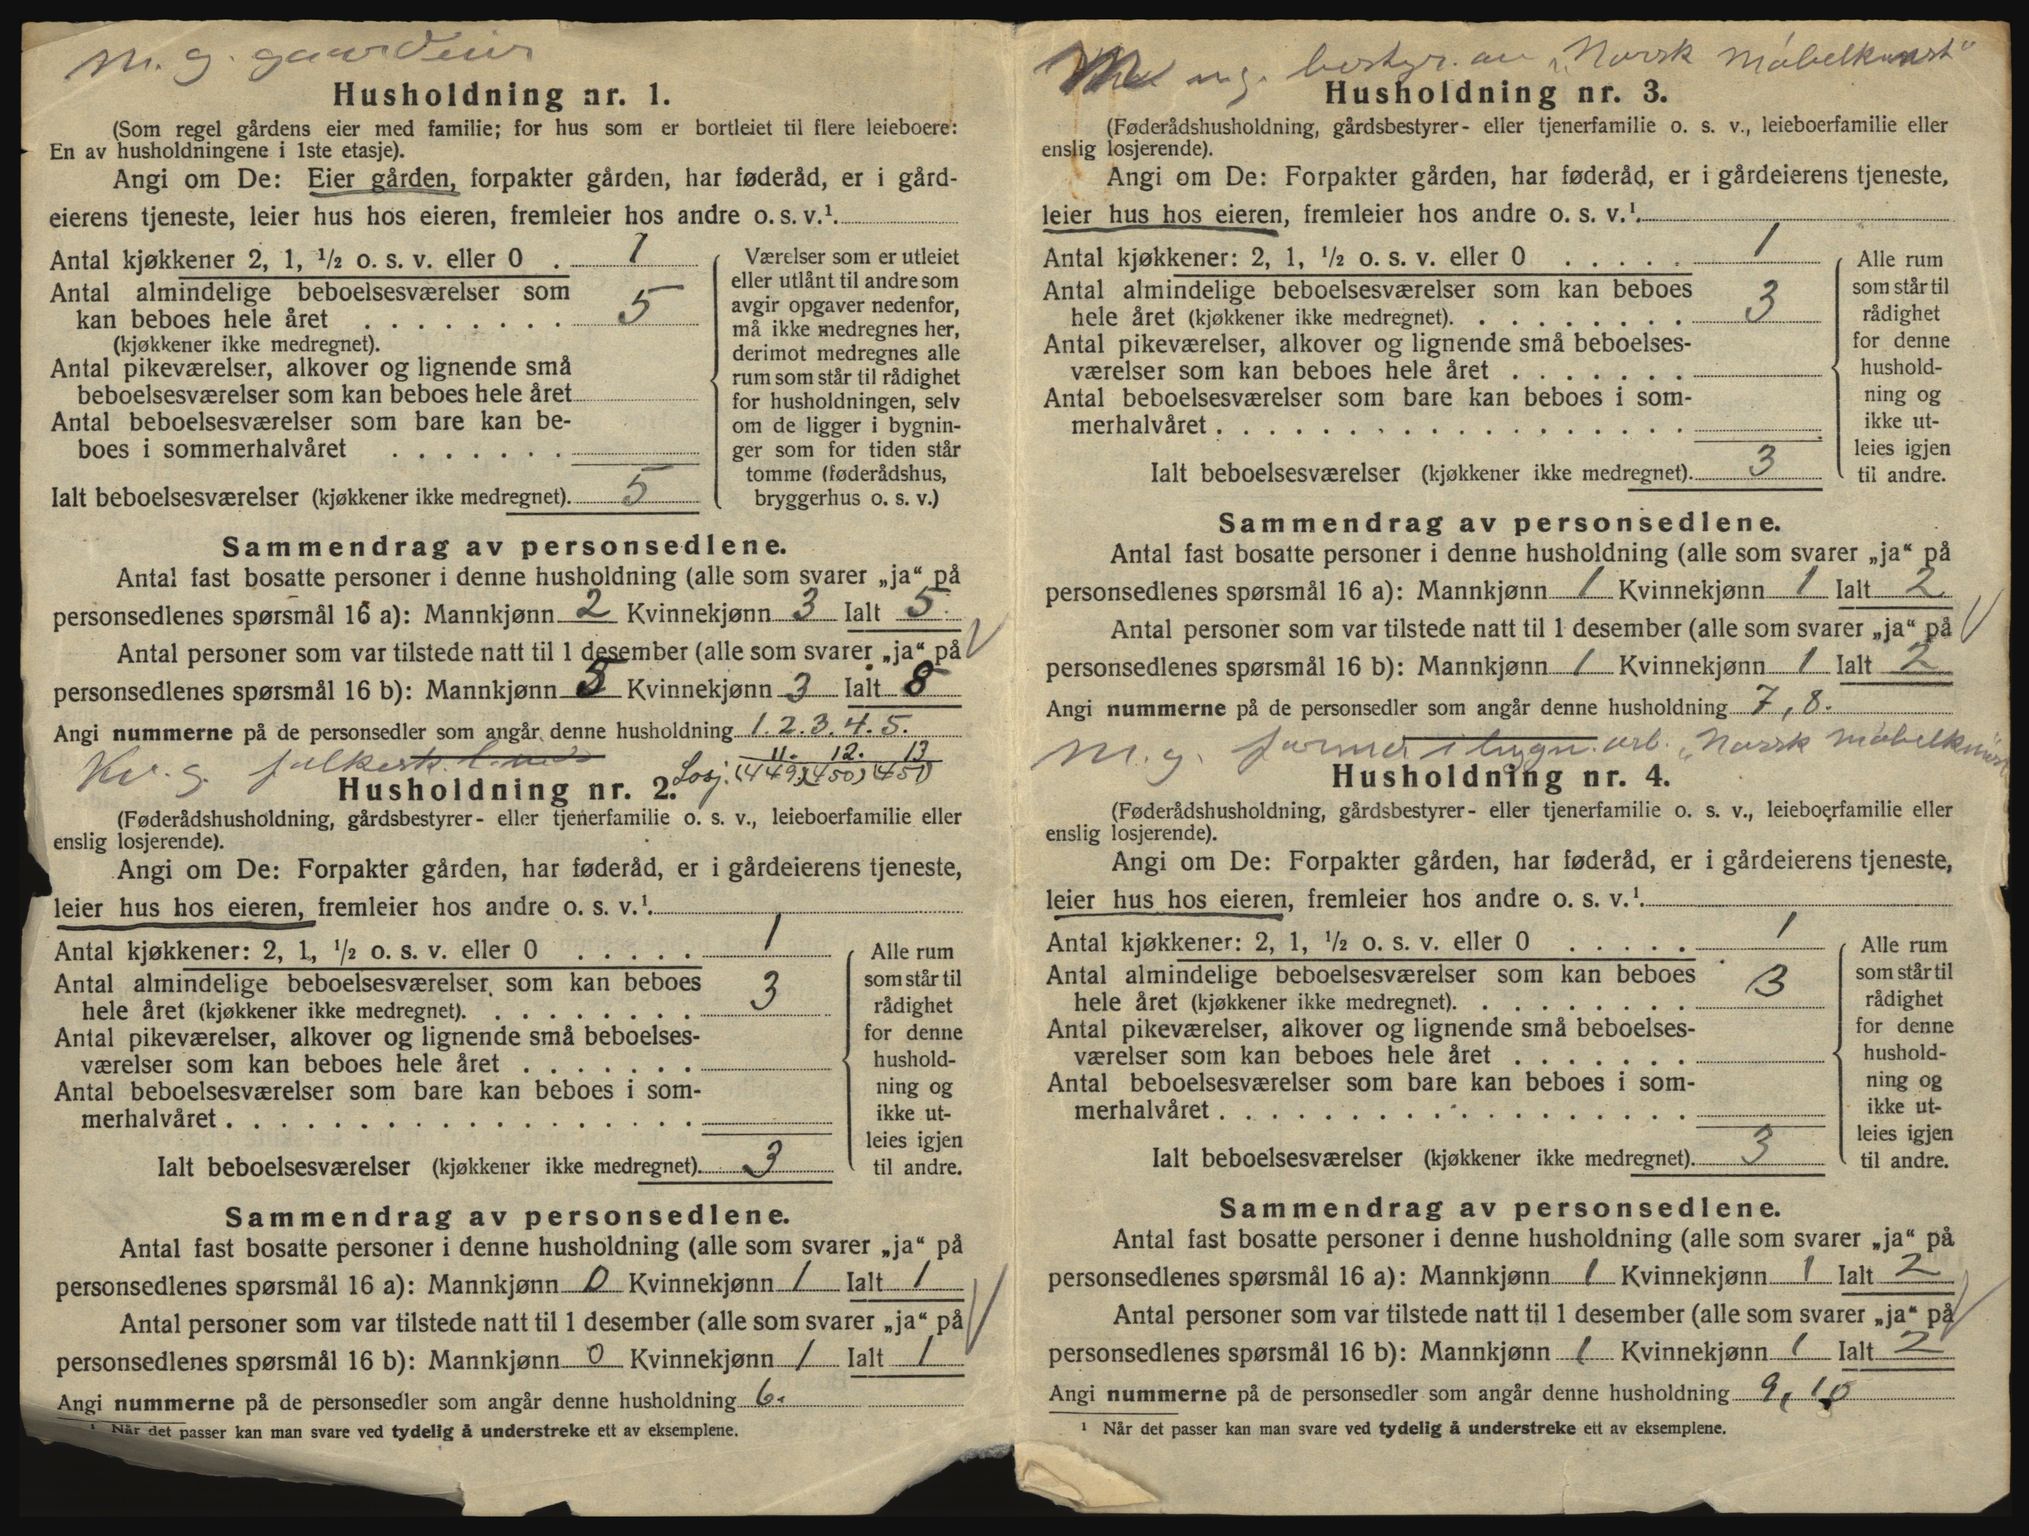 m. g. gaardeier
Husholdning nr. 1.
(Som regel gårdens eier med familie; for hus som er bortleiet til flere leieboere:
En av husholdningene i 1ste etasje).
Angi om De: Eier gården, forpakter gården, har føderåd, er i gård-
eierens tjeneste, leier hus hos eieren, fremleier hos andre o. s. v.¹.
Antal kjøkkener 2, 1, ½ o. s. v. eller 0 . 1
Antal almindelige beboelsesværelser som
kan beboes hele året . . . . . . . . 5
(kjøkkener ikke medregnet).
Antal pikeværelser, alkover og lignende små
beboelsesværelser som kan beboes hele året
Antal beboelsesværelser som bare kan be-
boes i sommerhalvåret . . . . . . .
Ialt beboelsesværelser (kjøkkener ikke medregnet). 5
Værelser som er utleiet
eller utlånt til andre som
avgir opgaver nedenfor,
må ikke medregnes her,
derimot medregnes alle
rum som står til rådighet
for husholdningen, selv
om de ligger i bygnin-
ger som for tiden står
tomme (føderådshus,
bryggerhus o. s. v.)
Sammendrag av personsedlene.
Antal fast bosatte personer i denne husholdning (alle som svarer „ja“ på
personsedlenes spørsmål 16 a): Mannkjønn 2 Kvinnekjønn 3 Ialt 5.
Antal personer som var tilstede natt til 1 desember (alle som svarer „ja“ på
personsedlenes spørsmål 16 b): Mannkjønn 5 Kvinnekjønn 3 Ialt 8
Angi nummerne på de personsedler som angår denne husholdning 1. 2. 3. 4. 5.
11. 12. 13
Losj. (449) (450) (451)
Kv. g.
Husholdning nr. 2.
(Føderådshusholdning, gårdsbestyrer- eller tjenerfamilie o. s. v., leieboerfamilie eller
enslig losjerende).
Angi om De: Forpakter gården, har føderåd, er i gårdeierens tjeneste,
leier hus hos eieren, fremleier hos andre o. s. v.¹.
Antal kjøkkener: 2, 1, ½ o. s. v. eller 0 . . . . . 1
Antal almindelige beboelsesværelser som kan beboes
hele året (kjøkkener ikke medregnet). . . . . . . . . 3
Antal pikeværelser, alkover og lignende små beboelses-
værelser som kan beboes hele året . . . . . . .
Antal beboelsesværelser som bare kan beboes i som-
merhalvåret . . . . . . . . . . . . . . . . . .
Ialt beboelsesværelser (kjøkkener ikke medregnet). 3
Alle rum
som står til
rådighet
for denne
hushold-
ning og
ikke ut-
leies igjen
til andre.
Sammendrag av personsedlene.
Antal fast bosatte personer i denne husholdning (alle som svarer „ja“ på
personsedlenes spørsmål 16 a): Mannkjønn 0 Kvinnekjønn 1 Ialt 1
Antal personer som var tilstede natt til 1 desember (alle som svarer „ja“ på
personsedlenes spørsmål 16 b): Mannkjønn 0 Kvinnekjønn 1 Ialt 1
Angi nummerne på de personsedler som angår denne husholdning 6.
¹ Når det passer kan man svare ved tydelig å understreke ett av eksemplene.
m. g. bestyr. av „Norsk Møbelkunst“
Husholdning nr. 3.
(Føderådshusholdning, gårdsbestyrer- eller tjenerfamilie o. s. v., leieboerfamilie eller
enslig losjerende).
Angi om De: Forpakter gården, har føderåd, er i gårdeierens tjeneste,
leier hus hos eieren, fremleier hos andre o. s. v.¹.
Antal kjøkkener: 2, 1, ½ o. s. v. eller 0 . . . . . 1
Antal almindelige beboelsesværelser som kan beboes
hele året (kjøkkener ikke medregnet). . . . . . . . . 3
Antal pikeværelser, alkover og lignende små beboelses-
værelser som kan beboes hele året . . . . . . .
Antal beboelsesværelser som bare kan beboes i som-
merhalvåret . . . . . . . . . . . . . . . . . .
Ialt beboelsesværelser (kjøkkener ikke medregnet). 3
Alle rum
som står til
rådighet
for denne
hushold-
ning og
ikke ut-
leies igjen
til andre.
Sammendrag av personsedlene.
Antal fast bosatte personer i denne husholdning (alle som svarer „ja“ på
personsedlenes spørsmål 16 a): Mannkjønn 1 Kvinnekjønn 1 Ialt 2
Antal personer som var tilstede natt til 1 desember (alle som svarer „ja“ på
personsedlenes spørsmål 16 b): Mannkjønn 1 Kvinnekjønn 1 Ialt 2
Angi nummerne på de personsedler som angår denne husholdning 7, 8.
m. g. i bygn. arb. „Norsk Møbelkunst“
Husholdning nr. 4.
(Føderådshusholdning, gårdsbestyrer- eller tjenerfamilie o. s. v., leieboerfamilie eller
enslig losjerende).
Angi om De: Forpakter gården, har føderåd, er i gårdeierens tjeneste,
leier hus hos eieren, fremleier hos andre o. s. v.¹.
Antal kjøkkener: 2, 1, ½ o. s. v. eller 0 . . . . . 1
Antal almindelige beboelsesværelser som kan beboes
hele året (kjøkkener ikke medregnet). . . . . . . . . 3
Antal pikeværelser, alkover og lignende små beboelses-
værelser som kan beboes hele året . . . . . . .
Antal beboelsesværelser som bare kan beboes i som-
merhalvåret . . . . . . . . . . . . . . . . . .
Ialt beboelsesværelser (kjøkkener ikke medregnet). 3
Alle rum
som står til
rådighet
for denne
hushold-
ning og
ikke ut-
leies igjen
til andre.
Sammendrag av personsedlene.
Antal fast bosatte personer i denne husholdning (alle som svarer „ja“ på
personsedlenes spørsmål 16 a): Mannkjønn 1 Kvinnekjønn 1 Ialt 2
Antal personer som var tilstede natt til 1 desember (alle som svarer „ja“ på
personsedlenes spørsmål 16 b): Mannkjønn 1 Kvinnekjønn 1 Ialt 2
Angi nummerne på de personsedler som angår denne husholdning 9, 10
¹ Når det passer kan man svare ved tydelig å understreke ett av eksemplene.